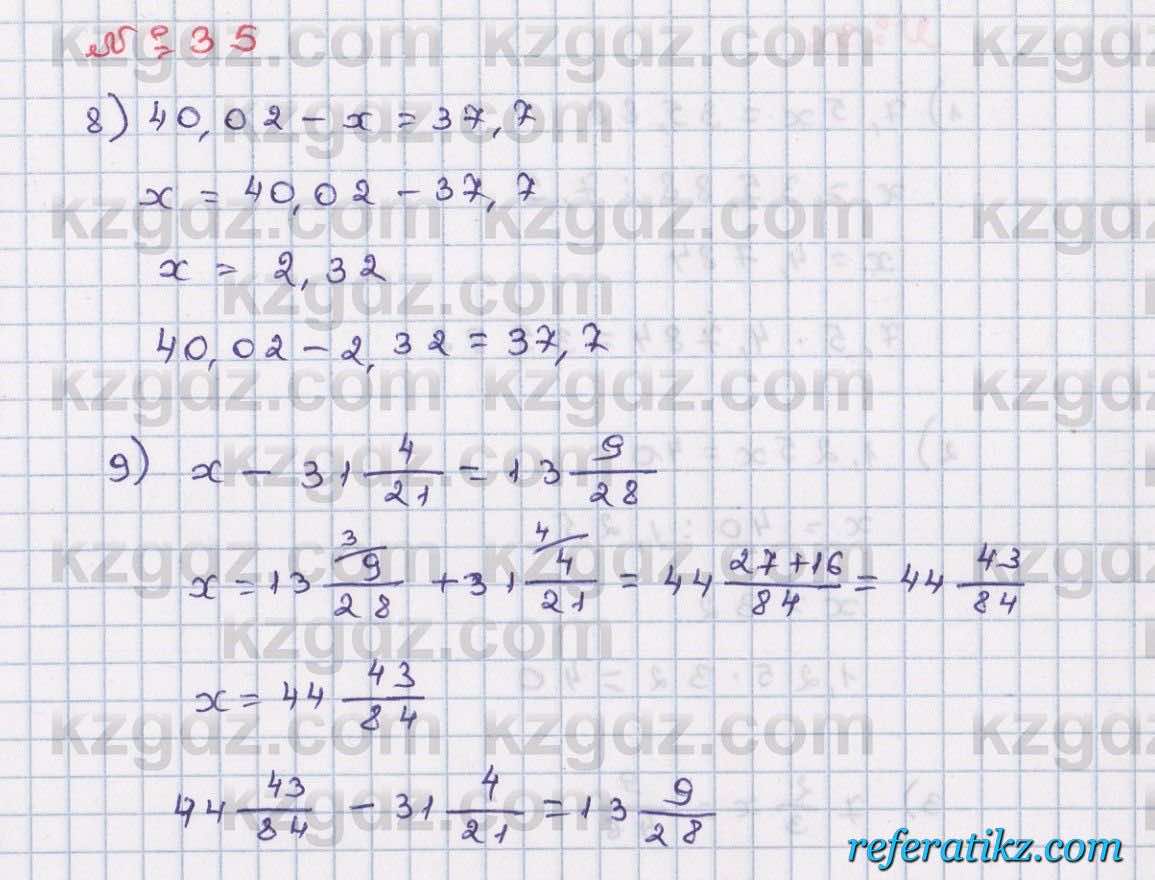 № 35
8) 40,02 - x = 37,7
x = 40,02 - 37,7
x = 2,32
40,02 - 2,32 = 37,7
9) x - 31 4/21 = 13 9/28
x = 13 ³⁄ 9/28 + 31 ⁴⁄ 4/21 = 44 27+16/84 = 44 43/84
x = 44 43/84
44 43/84 - 31 4/21 = 13 9/28
kzgdz.com
referatikz.com